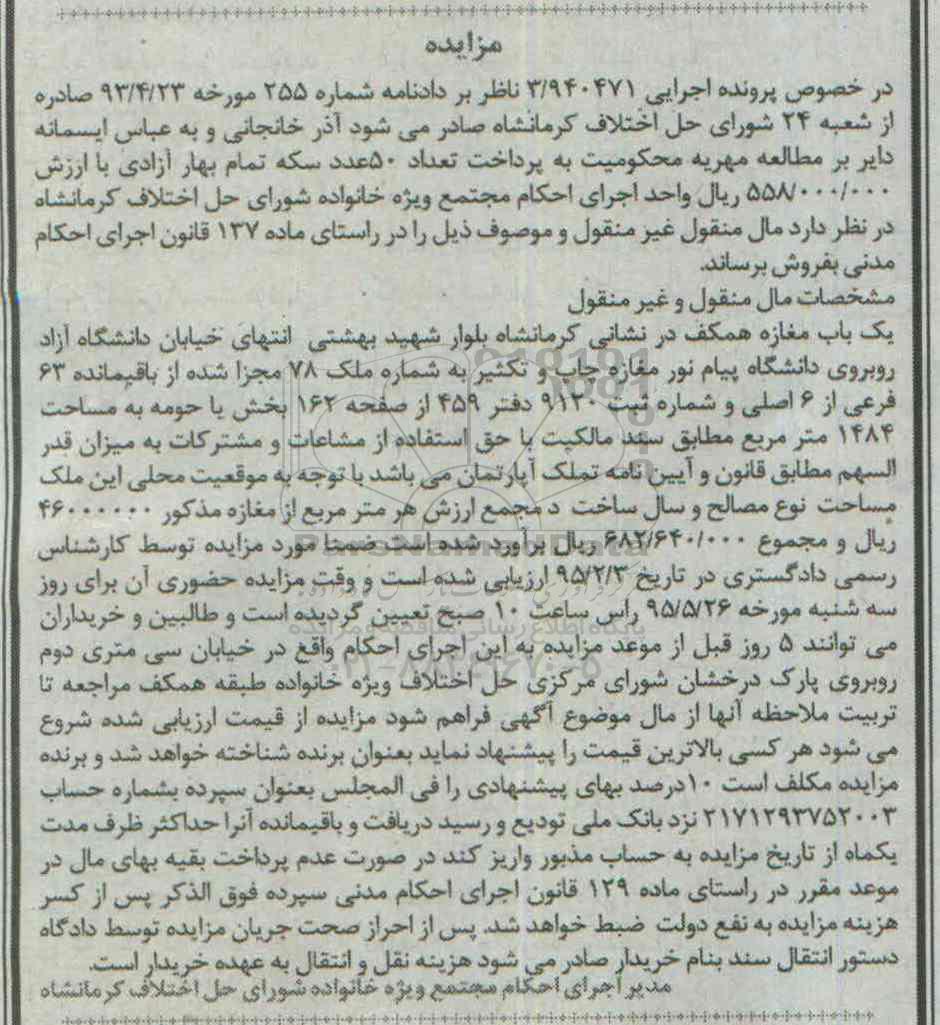 مزایده
در خصوص پرونده اجرایی ۳/۹۴۰۴۷۱ ناظر بر دادنامه شماره ۲۵۵ مورخه ۹۳/۴/۲۳ صادره
از شعبه ۲۴ شورای حل اختلاف کرمانشاه صادر می شود آذر خانجانی و به عباس ایسمانه
دایر بر مطالعه مهریه محکومیت به پرداخت تعداد ۵۰عدد سکه تمام بهار آزادی با ارزش
۵۵۸/۰۰۰/۰۰۰ ریال واحد اجرای احکام مجتمع ویژه خانواده شورای حل اختلاف کرمانشاه
در نظر دارد مال منقول غیر منقول و موصوف ذیل را در راستای ماده ۱۳۷ قانون اجرای احکام
مدنی بفروش برساند.
مشخصات مال منقول و غیر منقول
یک باب مغازه همکف در نشانی کرمانشاه بلوار شهید بهشتی انتهای خیابان دانشگاه آزاد
روبروی دانشگاه پیام نور مغازه چاپ و تکثیر به شماره ملک ۷۸ مجزا شده از باقیمانده ۶۳
فرعی از ۶ اصلی و شماره ثبت ۹۱۲۰ دفتر ۴۵۹ از صفحه ۱۶۲ بخش یا حومه به مساحت
۱۴۸۴ متر مربع مطابق سند مالکیت با حق استفاده از مشاعات و مشترکات به میزان قدر
السهم مطابق قانون و آیین نامه تملک آپارتمان می باشد با توجه به موقعیت محلی این ملک
مساحت نوع مصالح و سال ساخت د مجمع ارزش هر متر مربع از مغازه مذکور ۴۶۰۰۰۰۰۰
ریال و مجموع ۶۸۲/۶۴۰/۰۰۰ ریال برآورد شده است ضمنا مورد مزایده توسط کارشناس
رسمی دادگستری در تاریخ ۹۵/۲/۳ ارزیابی شده است و وقت مزایده حضوری آن برای روز
سه شنبه مورخه ۹۵/۵/۲۶ راس ساعت ۱۰ صبح تعیین گردیده است و طالبین و خریداران
می توانند ۵ روز قبل از موعد مزایده به این اجرای احکام واقع در خیابان سی متری دوم
روبروی پارک درخشان شورای مرکزی حل اختلاف ویژه خانواده طبقه همکف مراجعه تا
تربیت ملاحظه آنها از مال موضوع آگهی فراهم شود مزایده از قیمت ارزیابی شده شروع
می شود هر کسی بالاترین قیمت را پیشنهاد نماید بعنوان برنده شناخته خواهد شد و برنده
مزایده مکلف است ۱۰درصد بهای پیشنهادی را فی المجلس بعنوان سپرده بشماره حساب
۲۱۷۱۲۹۳۷۵۲۰۰۳ نزد بانک ملی تودیع و رسید دریافت و باقیمانده آنرا حداکثر ظرف مدت
یکماه از تاریخ مزایده به حساب مذبور واریز کند در صورت عدم پرداخت بقیه بهای مال در
موعد مقرر در راستای ماده ۱۲۹ قانون اجرای احکام مدنی سپرده فوق الذکر پس از کسر
هزینه مزایده به نفع دولت ضبط خواهد شد. پس از احراز صحت جریان مزایده توسط دادگاه
دستور انتقال سند بنام خریدار صادر می شود هزینه نقل و انتقال به عهده خریدار است.
مدیر اجرای احکام مجتمع ویژه خانواده شورای حل اختلاف کرمانشاه